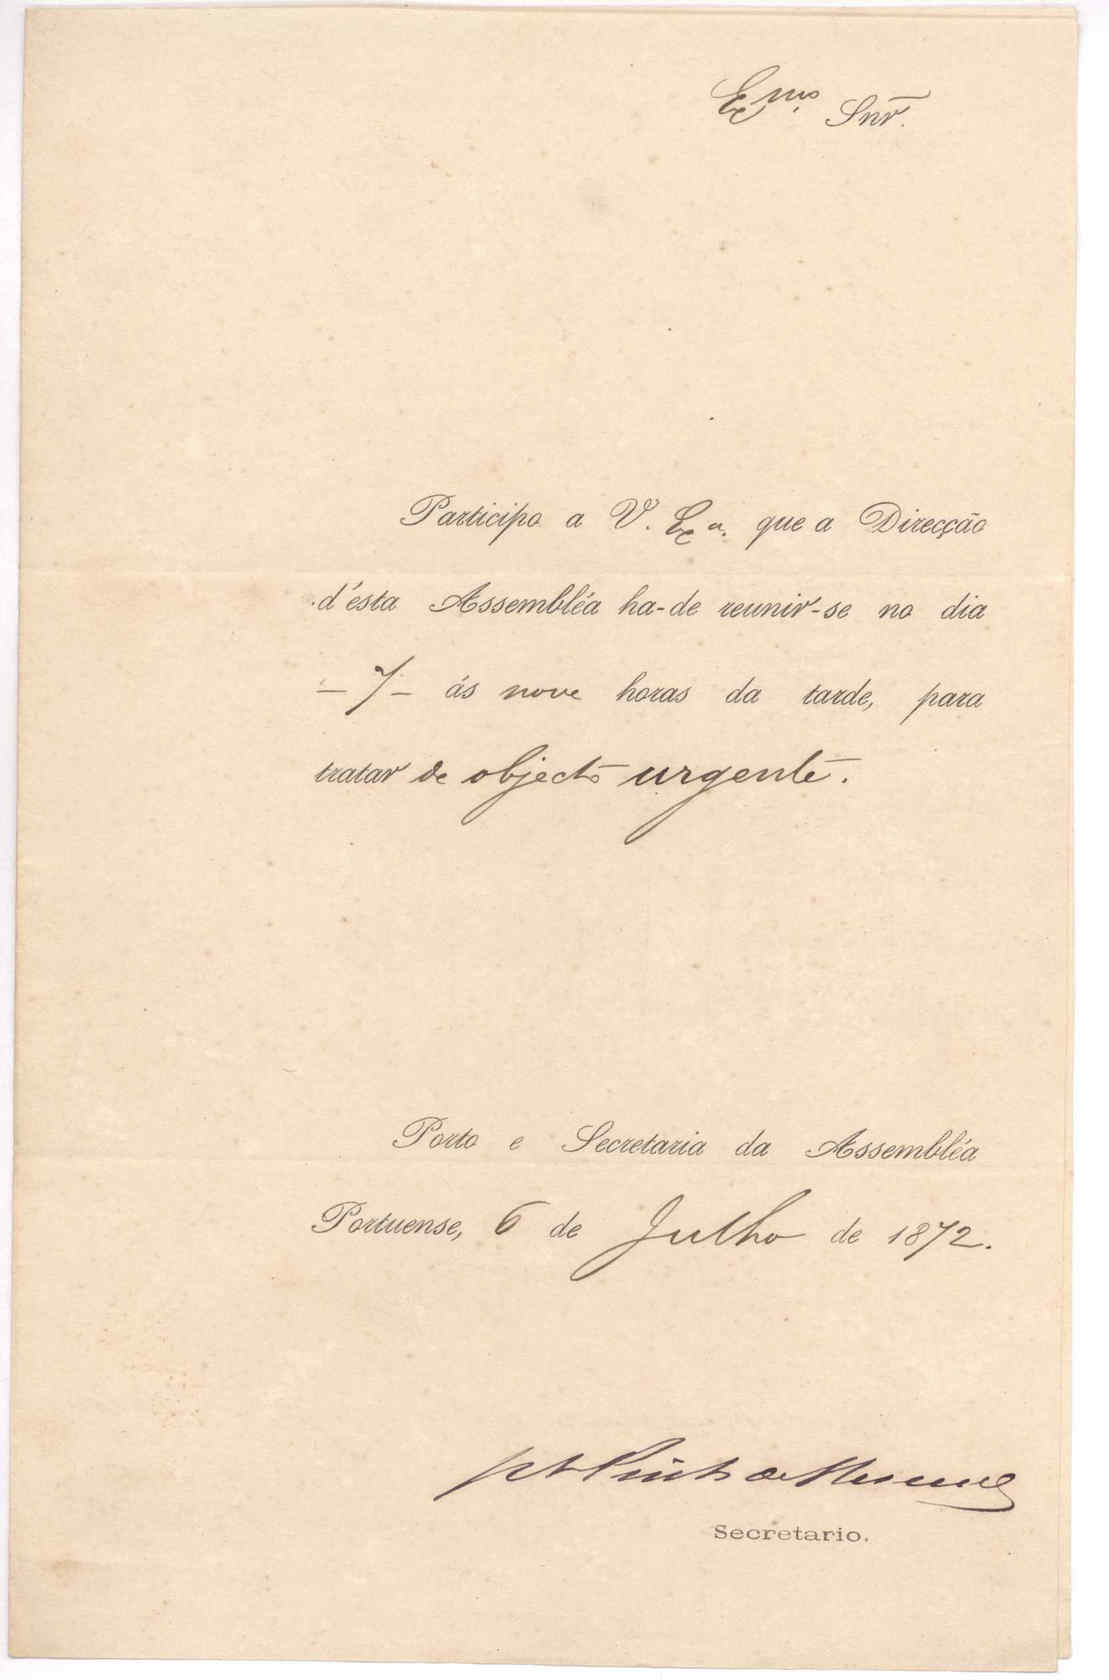 Exmo. Snr.
Participo a V. Exa. que a Direcção
d'ésta Assembléa ha-de reunir-se no dia
– 7 – ás nove horas da tarde, para
tratar de objecto urgente.
Porto e Secretaria da Assembléa
Portuense, 6 de Julho de 1872.
Pinto de
Secretario.